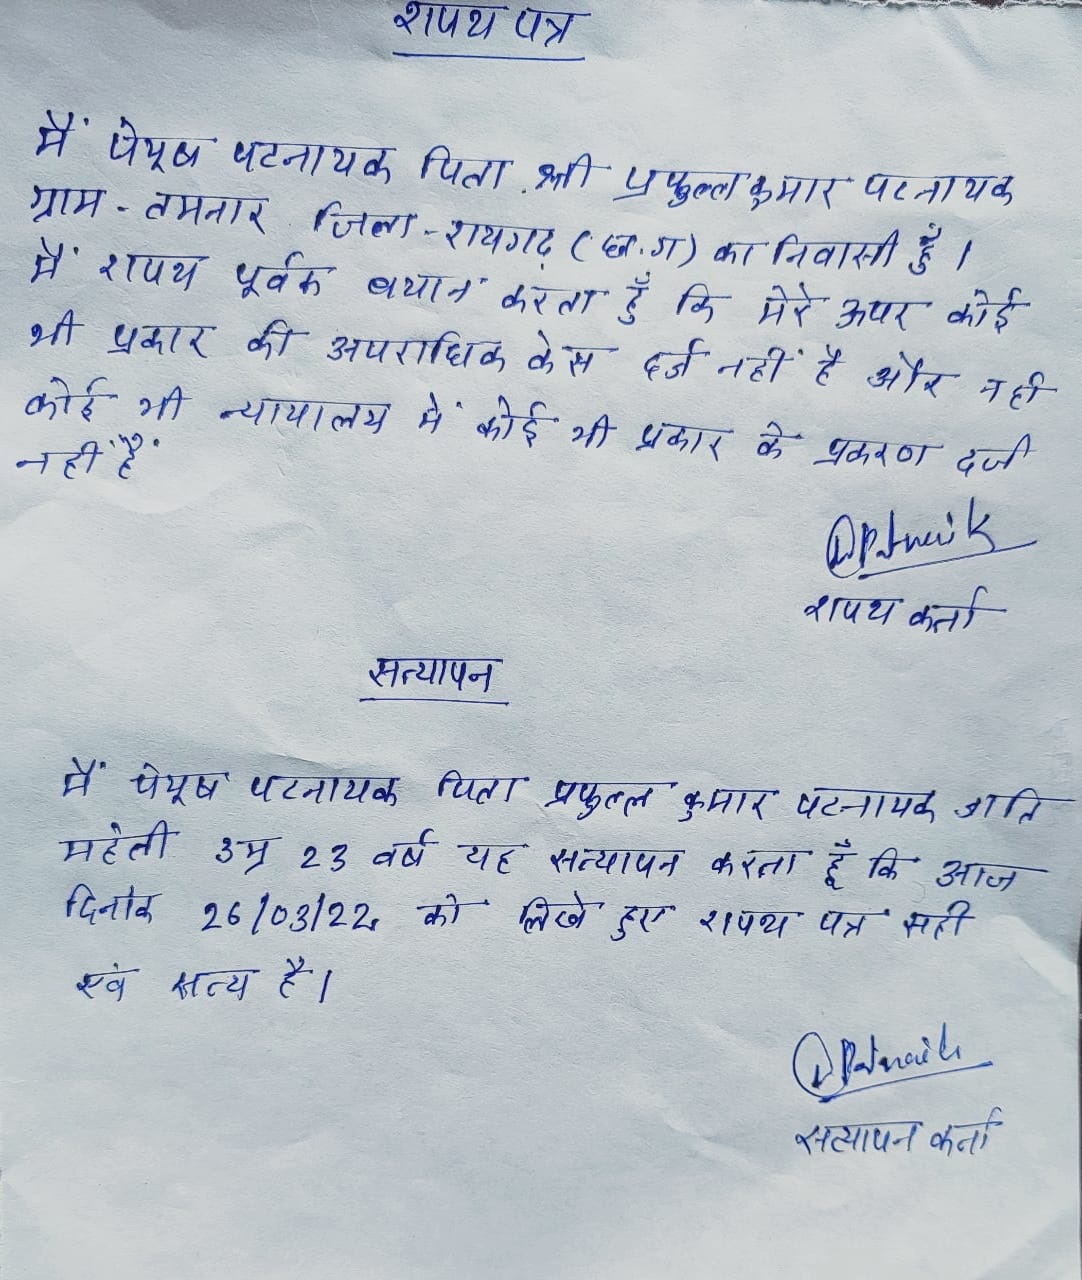 शपथ पत्र
मैं पेयूष पटनायक पिता श्री प्रफुल्ल कुमार पटनायक
ग्राम - तमनार जिला - रायगढ़ (छ.ग) का निवासी हूँ।
मैं शपथ पूर्वक बयान करता हूँ कि मेरे ऊपर कोई
भी प्रकार की अपराधिक केस दर्ज नहीं है और नही
कोई भी न्यायालय में कोई भी प्रकार के प्रकरण दर्ज
नहीं है
Patnaik
शपथ कर्ता
सत्यापन
मैं पेयूष पटनायक पिता प्रफुल्ल कुमार पटनायक जाति
उम्र 23 वर्ष यह सत्यापन करता हूँ कि आज
दिनांक 26/03/22 को लिखे हुए शपथ पत्र सही
एवं सत्य है।
Patnaik
सत्यापन कर्ता